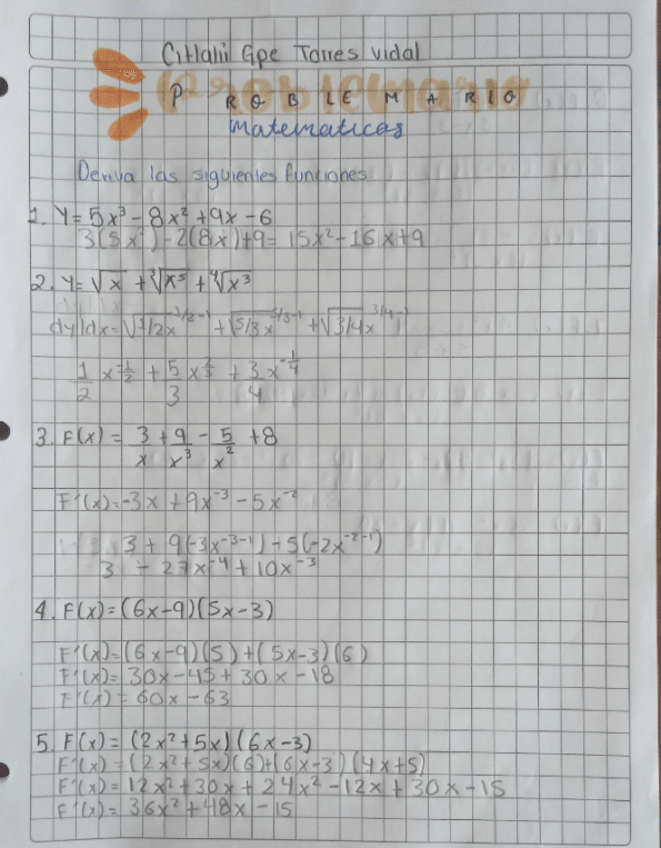 Citlalii Gpe Torres Vidal
PROBLEMARIO
Matematicas
Deriva las siguientes funciones
1. Y = 5x³ - 8x² + 9x - 6
3(5x²) - 2(8x) + 9 = 15x² - 16x + 9
2. Y = √x + ∛x⁵ + ∜x³
dy/dx = √1/2x^1/2-1 + √5/3x^5/3-1 + √3/4x^3/4-1
1/2 x^-1/2 + 5/3 x^2/3 + 3/4 x^-1/4
3. F(x) = 3/x + 9/x³ - 5/x² + 8
F'(x) = -3x + 9x⁻³ - 5x⁻²
3 + 9(-3x⁻³⁻¹) - 5(-2x⁻²⁻¹)
3 - 27x⁻⁴ + 10x⁻³
4. F(x) = (6x-9)(5x-3)
F'(x) = (6x-9)(5) + (5x-3)(6)
F'(x) = 30x - 45 + 30x - 18
F'(x) = 60x - 63
5. F(x) = (2x² + 5x)(6x-3)
F'(x) = (2x² + 5x)(6) + (6x-3)(4x+5)
F'(x) = 12x² + 30x + 24x² - 12x + 30x - 15
F'(x) = 36x² + 48x - 15